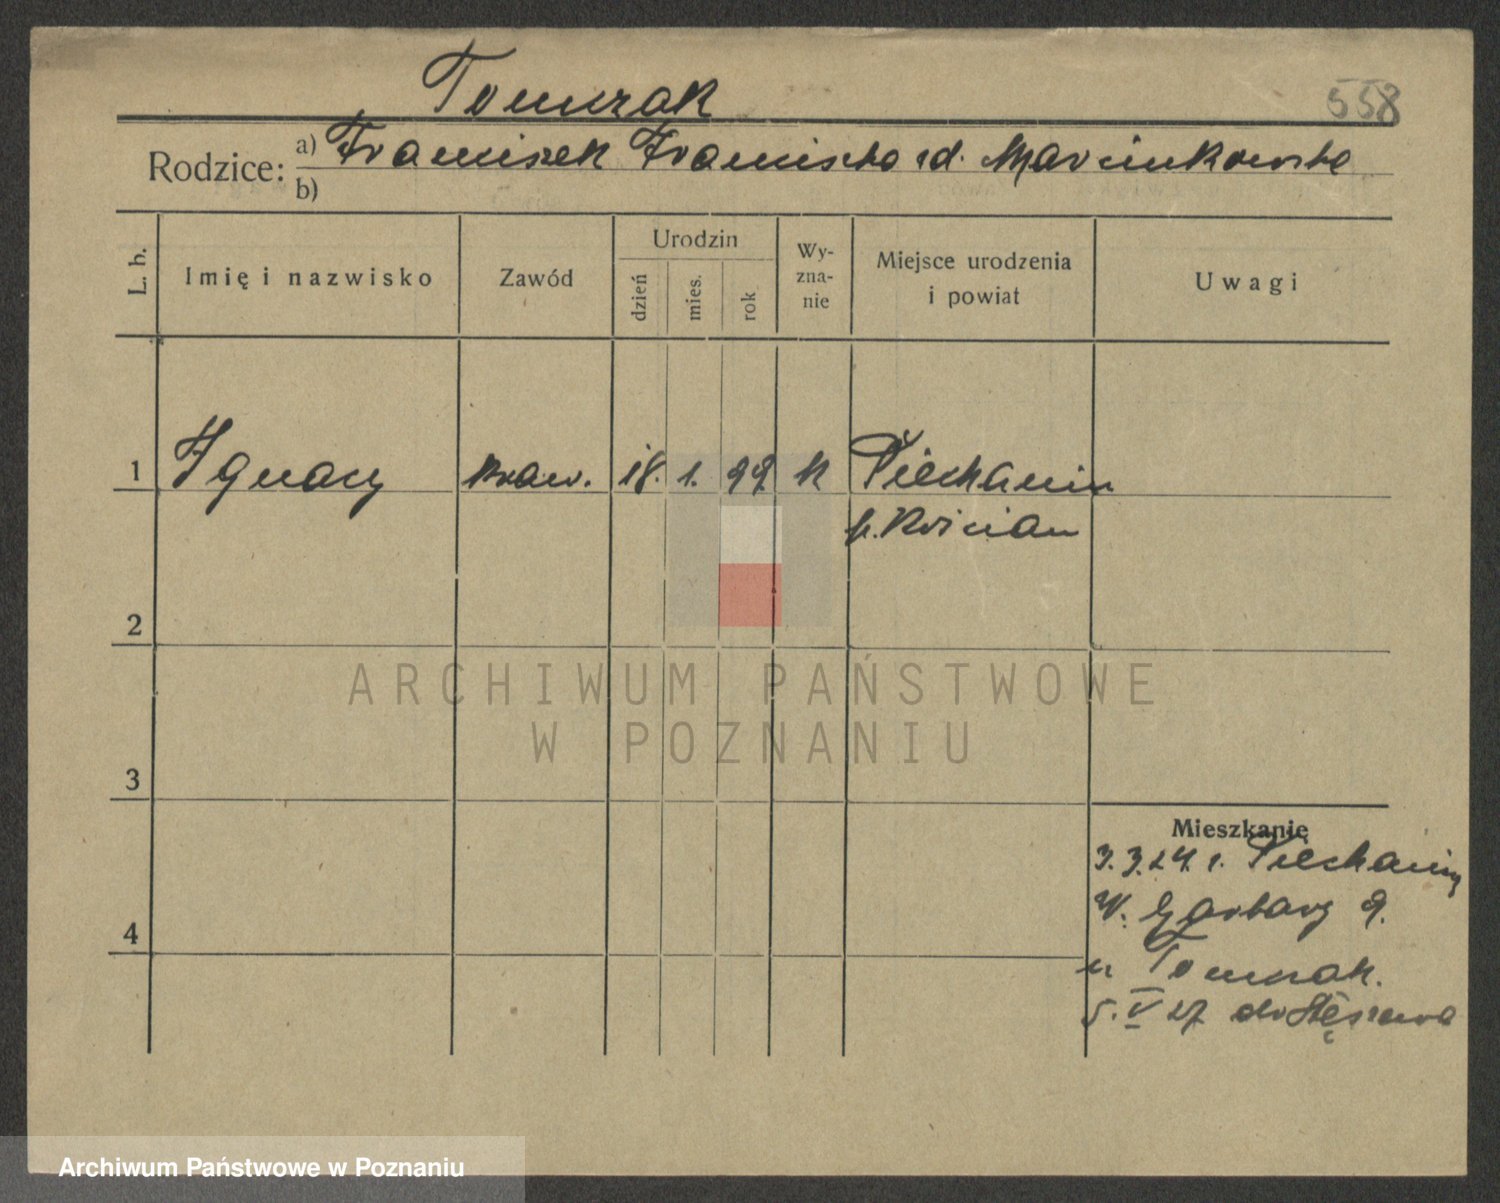 Tomczak
558
Rodzice:
a) Franciszek Franciszka zd. Marcinkowska
b)
L. b.
Imię i nazwisko
Zawód
Urodzin
dzień
mies.
rok
Wy-
zna-
nie
Miejsce urodzenia
i powiat
Uwagi
1
Ignacy
kraw.
18.
1.
99
k
Piechanin
p. Kościan
2
3
4
ARCHIWUM PAŃSTWOWE
W POZNANIU
Mieszkanie
3.3.24. z. Piechaniny
W. Garbary 9.
u Tomczak.
5. V 27 do Stęszewa
Archiwum Państwowe w Poznaniu